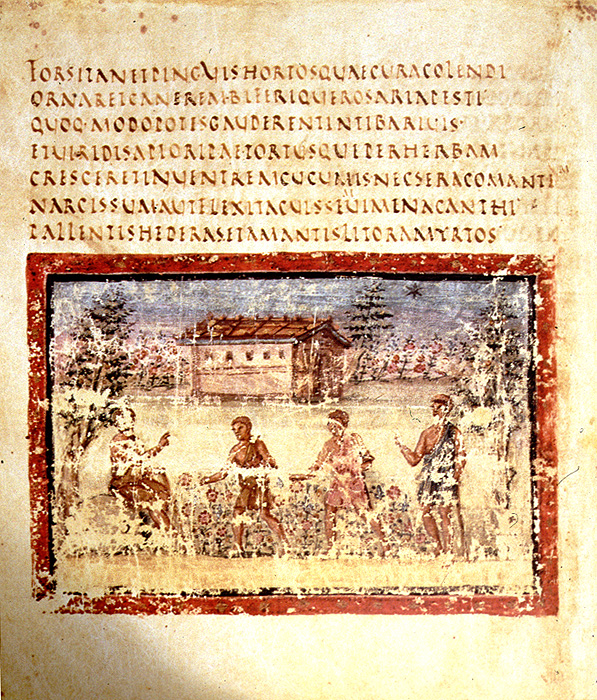 FORSITANETPINGVISHORTOSQVAECVRACOLENDI
ORNARETCANEREMBIFERIQVEROSARIAPESTI
QVOQ·MODOPOTISGAVDERENTINTIBARIVIS·
ETVIRIDISAPIORIPAETORTVSQVEPERHERBAM
CRESCERETINVENTREMCVCVMISNECSERACOMANTEM
NARCISSVMAVTFLEXITACVISSEMVIMENACANTHI
PALLENTISHEDERASETAMANTISLITORAMYRTOS